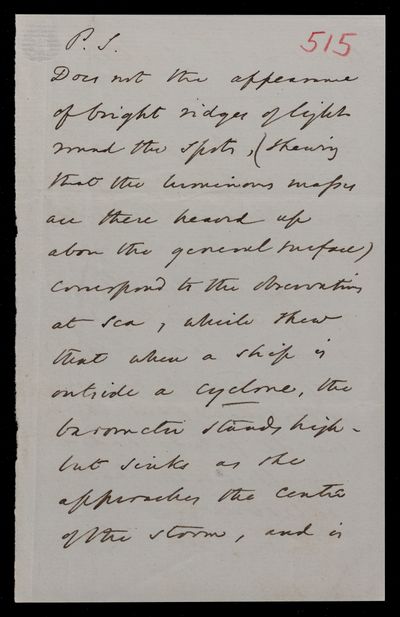 P.S. 515
Does not the appearance
of bright ridges of light
round the spots, (shewing
that the luminous masses
are there heaved up
above the general surface)
correspond to the observations
at sea, which shew
that when a ship is
outside a cyclone, the
barometer stands high -
but sinks as she
approaches the centre
of the storm, and is